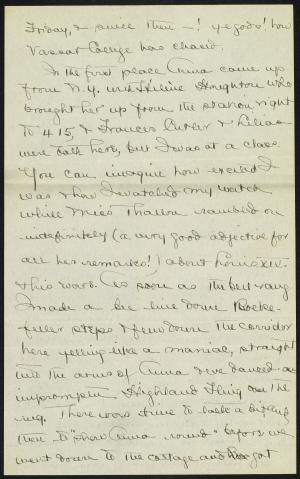 Friday, & since then —! ye gods! how
Vassar College has chang'd.
In the first place Anna came up
from N.Y. with Helene Houghton who
brought her up from the station right
to 415, & Frances Cutler & Lilian
were both here, but I was at a class.
You can imagine how excited I
was & how I watched my watch
while Miss Thallon rambled on
indefinitely (a very good adjective for
all her remarks!) about Louis XIV.
& his wars. As soon as the bell rang
I made a bee-line down Rocke-
feller steps & flew down the corridor
here yelling like a maniac, straight
into the arms of Anna & we danced an
impromptu Highland Fling on the
rug. There was time to take a
then to "show Anna round" before we
went down to the cottage and got